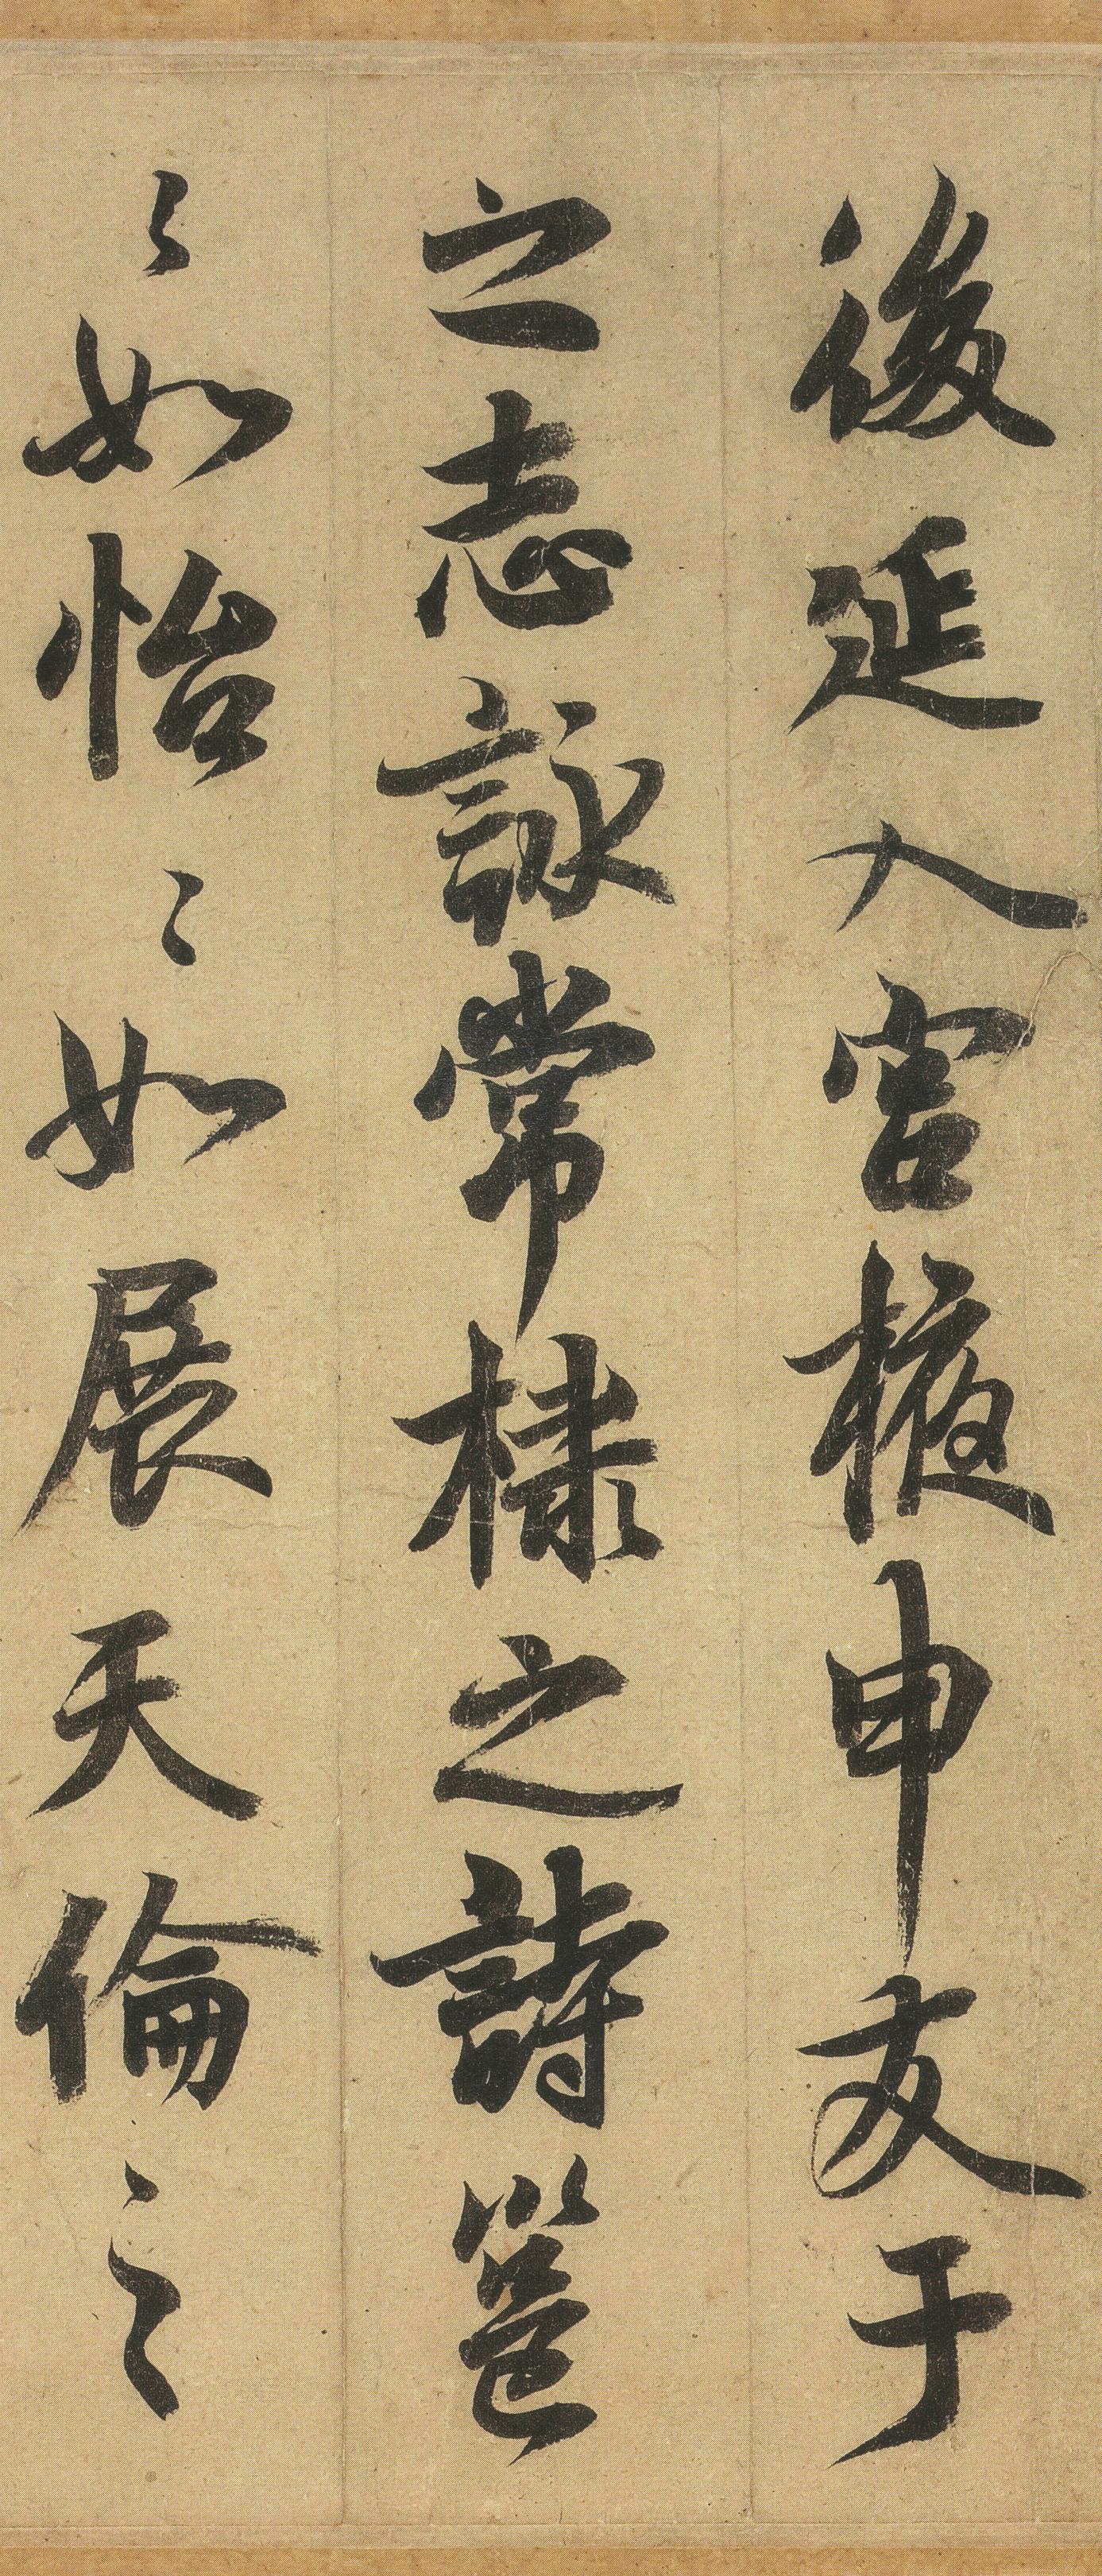 後延入宮掖申友于
之志詠常棣之詩邕
〻如怡〻如展天倫之